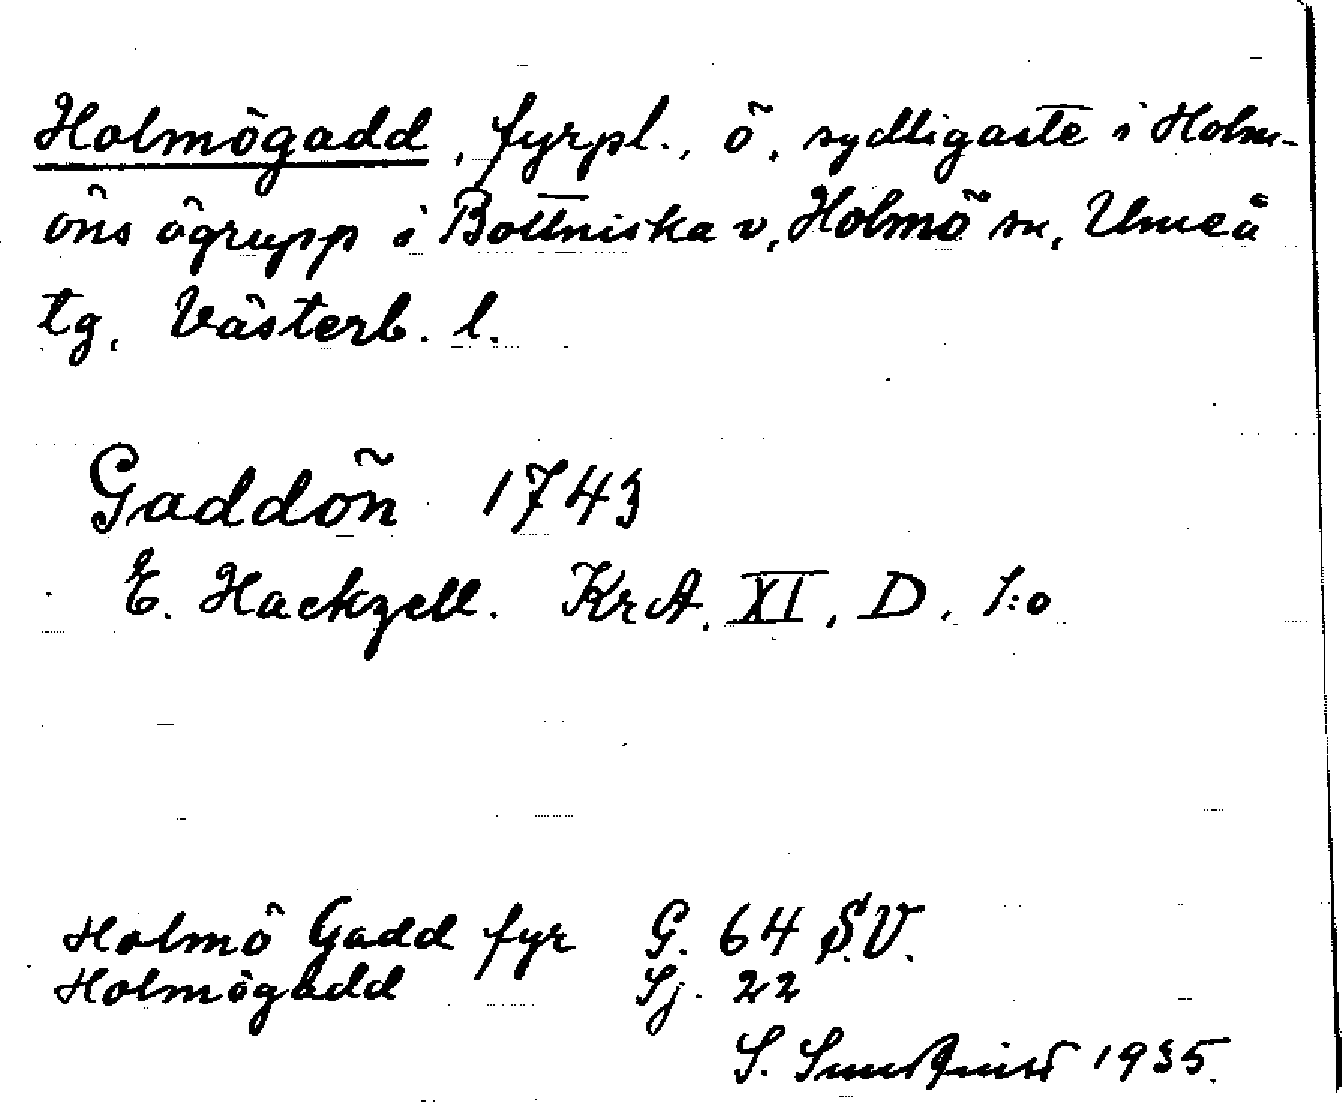 Holmögadd, fyrpl., ö, sydligaste i Holm-
öns ögrupp i Bottniska v, Holmö sn, Umeå
tg, Västerb. l.
Gaddön 1743
E. Hackzell. KrA. XI, D, 1:o
Holmö Gadd fyr G. 64 S.V.
Holmögadd Sj. 22
S. Sundquist 1935.